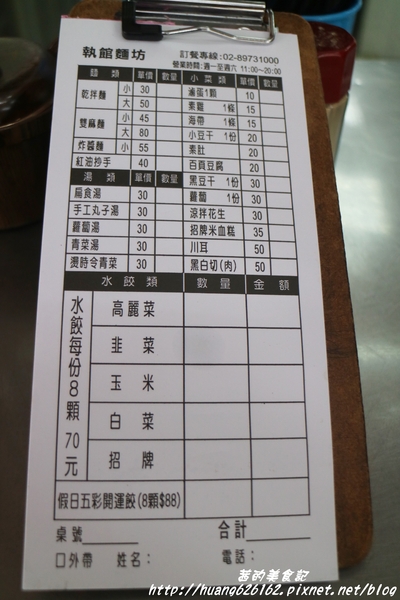 執館麵坊
訂餐專線:02-89731000
營業時間:週一至週六 11:00~20:00
麵類 單價 數量 小菜類 單價 數量
乾拌麵 小 30
大 50
雙麻麵 小 45
大 80
炸醬麵 小 55
紅油抄手 40
滷蛋1顆 10
素雞 1條 15
海帶 1條 15
小豆干 1份 20
素肚 20
百頁豆腐 20
黑豆干 1份 30
蘿蔔 1份 30
涼拌花生 30
招牌米血糕 35
川耳 50
黑白切(肉) 50
湯類 單價 數量
扁食湯 30
手工丸子湯 30
蘿蔔湯 30
青菜湯 30
燙時令青菜 30
水餃類 數量 金額
水餃每份8顆70元
高麗菜
韭菜
玉米
白菜
招牌
假日五彩開運餃(8顆$88)
桌號 合計
口外帶 姓名: 電話:
茗的美食記
http://huang626162.pixnet.net/blog